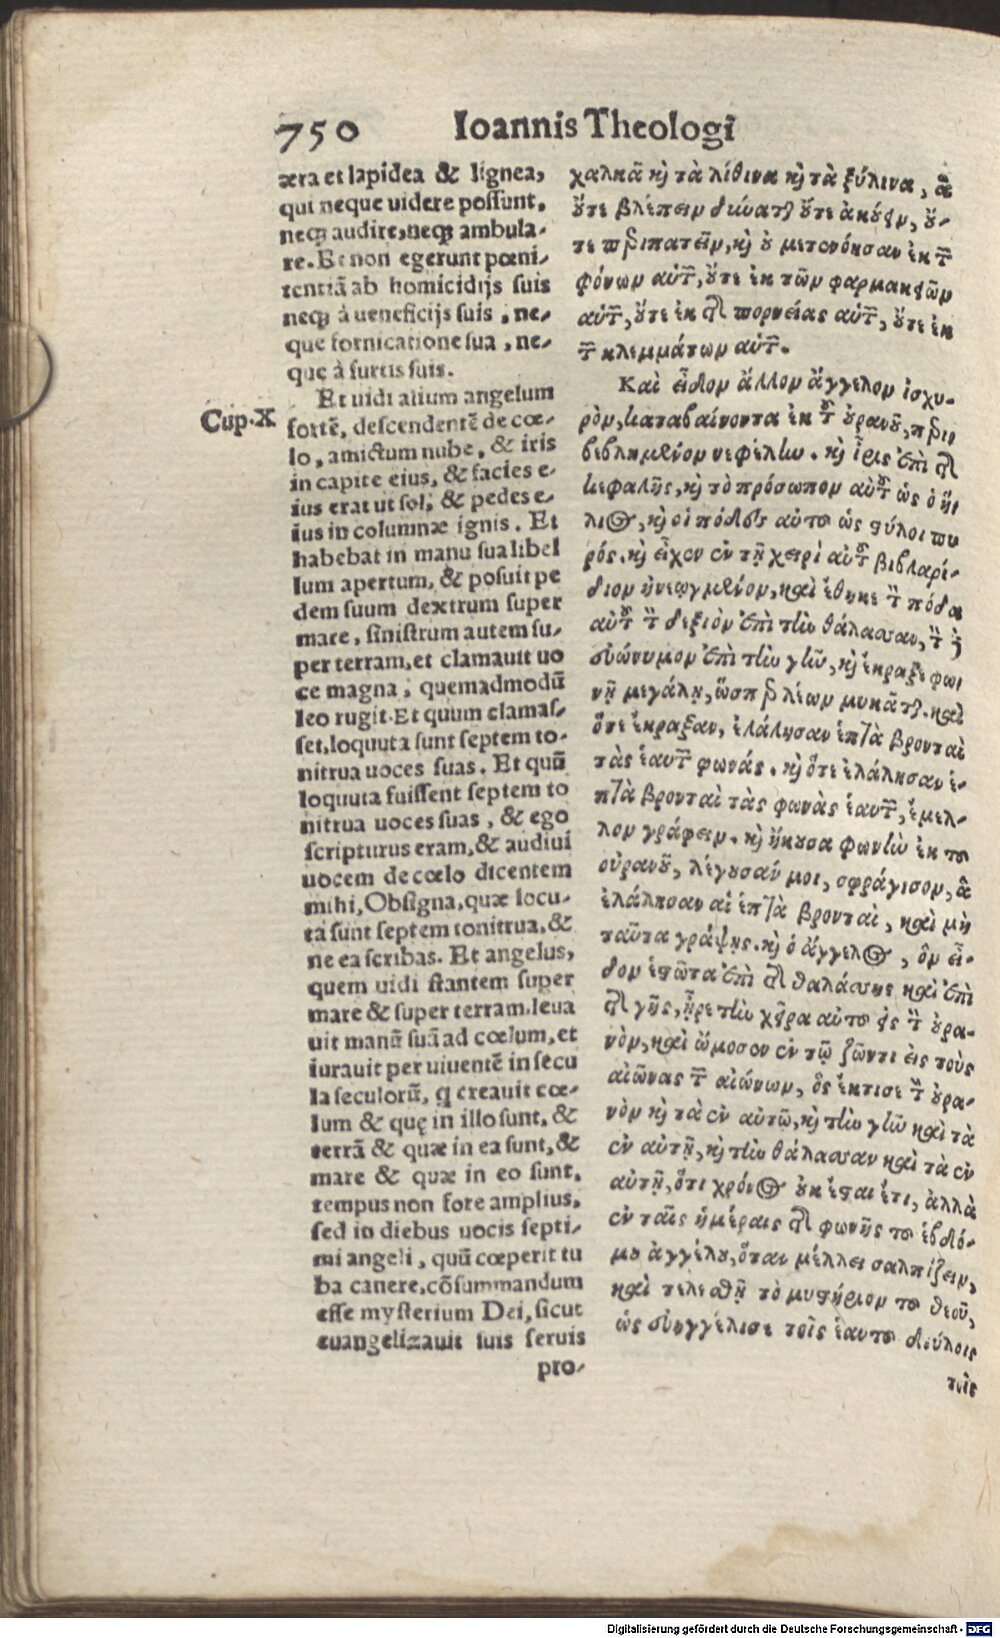 750 Ioannis Theologi
æra et lapidea & lignea,
qui neque uidere possunt,
neq; audire, neq; ambula-
re. Et non egerunt pœni-
tentiã ab homicidijs suis
neq; à ueneficijs suis, ne-
que fornicatione sua, ne-
que à furtis suis.
Cap. X
Et uidi alium angelum
fortẽ, descendentẽ de cœ-
lo, amictum nube, & iris
in capite eius, & facies e-
ius erat ut sol, & pedes e-
ius in columnæ ignis. Et
habebat in manu sua libel
lum apertum, & posuit pe
dem suum dextrum super
mare, sinistrum autem su-
per terram, et clamauit uo
ce magna, quemadmodũ
leo rugit. Et quum clamas-
set, loquuta sunt septem to-
nitrua uoces suas. Et quũ
loquuta fuissent septem to
nitrua uoces suas, & ego
scripturus eram, & audiui
uocem de cœlo dicentem
mihi, Obsigna, quæ locu-
ta sunt septem tonitrua, &
ne ea scribas. Et angelus,
quem uidi stantem super
mare & super terram, leua
uit manũ suã ad cœlum, et
iurauit per uiuentẽ in secu
la seculorũ, q creauit cœ-
lum & quę in illo sunt, &
terrã & quæ in ea sunt, &
mare & quæ in eo sunt,
tempus non fore amplius,
sed in diebus uocis septi-
mi angeli, quũ cœperit tu
ba canere, cõsummandum
esse mysterium Dei, sicut
euangelizauit suis seruis
pro-
χαλκᾶ καὶ τὰ λίθινα καὶ τὰ ξύλινα, ἃ
οὔτε βλέπειν δύναται οὔτε ἀκούειν, οὔ-
τε περιπατεῖν, καὶ οὐ μετενόησαν ἐκ τῶν
φόνων αὐτῶν, οὔτε ἐκ τῶν φαρμακειῶν
αὐτῶν, οὔτε ἐκ τῆς πορνείας αὐτῶν, οὔτε ἐκ
τῶν κλεμμάτων αὐτῶν.
Καὶ εἶδον ἄλλον ἄγγελον ἰσχυ-
ρὸν, καταβαίνοντα ἐκ τοῦ οὐρανοῦ, περι
βεβλημένον νεφέλην. καὶ ἶρις ἐπὶ τῆς
κεφαλῆς, καὶ τὸ πρόσωπον αὐτοῦ ὡς ὁ ἥ
λιος, καὶ οἱ πόδες αὐτοῦ ὡς στύλοι πυ
ρός. καὶ εἶχεν ἐν τῇ χειρὶ αὐτοῦ βιβλαρί-
διον ἠνεῳγμένον, καὶ ἔθηκε τὸν πόδα
αὐτοῦ τὸν δεξιὸν ἐπὶ τὴν θάλασσαν, τὸν δὲ
εὐώνυμον ἐπὶ τὴν γῆν, καὶ ἔκραξε φω
νῇ μεγάλῃ, ὥσπερ λέων μυκᾶται. καὶ
ὅτε ἔκραξεν, ἐλάλησαν ἑπτὰ βρονταὶ
τὰς ἑαυτῶν φωνάς. καὶ ὅτε ἐλάλησαν ἑ-
πτὰ βρονταὶ τὰς φωνὰς ἑαυτῶν, ἔμελ-
λον γράφειν. καὶ ἤκουσα φωνὴν ἐκ τοῦ
οὐρανοῦ, λέγουσάν μοι, σφράγισον, ἃ
ἐλάλησαν αἱ ἑπτὰ βρονταὶ, καὶ μὴ
ταῦτα γράψῃς. καὶ ὁ ἄγγελος, ὃν εἶ-
δον ἑστῶτα ἐπὶ τῆς θαλάσσης καὶ ἐπὶ
τῆς γῆς, ἦρε τὴν χεῖρα αὐτοῦ εἰς τὸν οὐρα-
νὸν, καὶ ὤμοσεν ἐν τῷ ζῶντι εἰς τοὺς
αἰῶνας τῶν αἰώνων, ὃς ἔκτισε τὸν οὐρα-
νὸν καὶ τὰ ἐν αὐτῷ, καὶ τὴν γῆν καὶ τὰ
ἐν αὐτῇ, καὶ τὴν θάλασσαν καὶ τὰ ἐν
αὐτῇ, ὅτι χρόνος οὐκ ἔσται ἔτι, ἀλλὰ
ἐν ταῖς ἡμέραις τῆς φωνῆς τοῦ ἑβδό-
μου ἀγγέλου, ὅταν μέλλει σαλπίζειν,
καὶ τελεσθῇ τὸ μυστήριον τοῦ θεοῦ,
ὡς εὐηγγέλισε τοῖς ἑαυτοῦ δούλοις
τοῖς
Digitalisierung gefördert durch die Deutsche Forschungsgemeinschaft - DFG